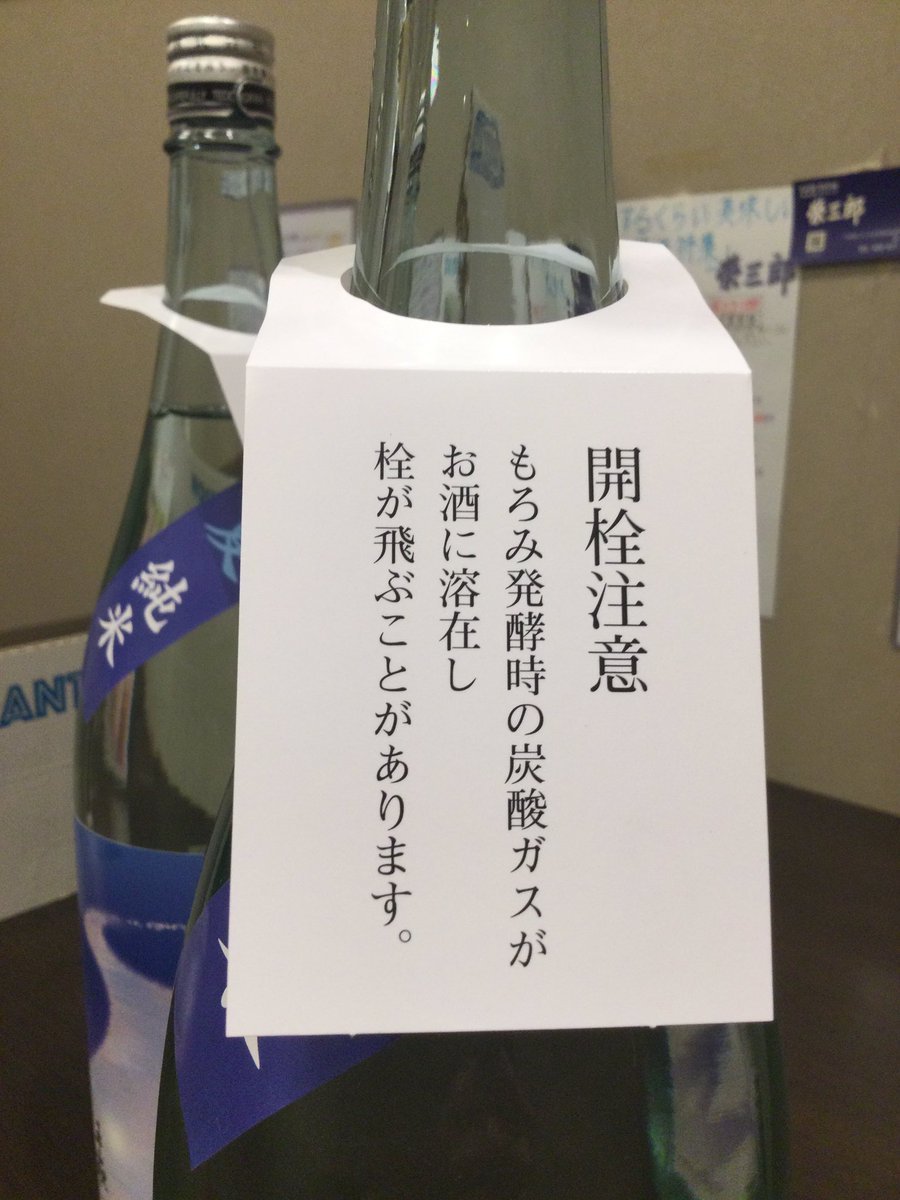 開栓注意
もろみ発酵時の炭酸ガスが
お酒に溶在し
栓が飛ぶことがあります。
純米
ANT
榮三郎
榮三郎